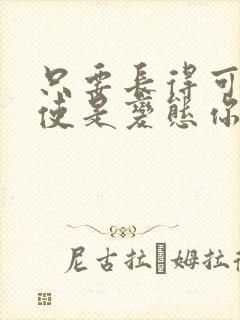 只要長得可
使是變態你
尼古拉 姆拉